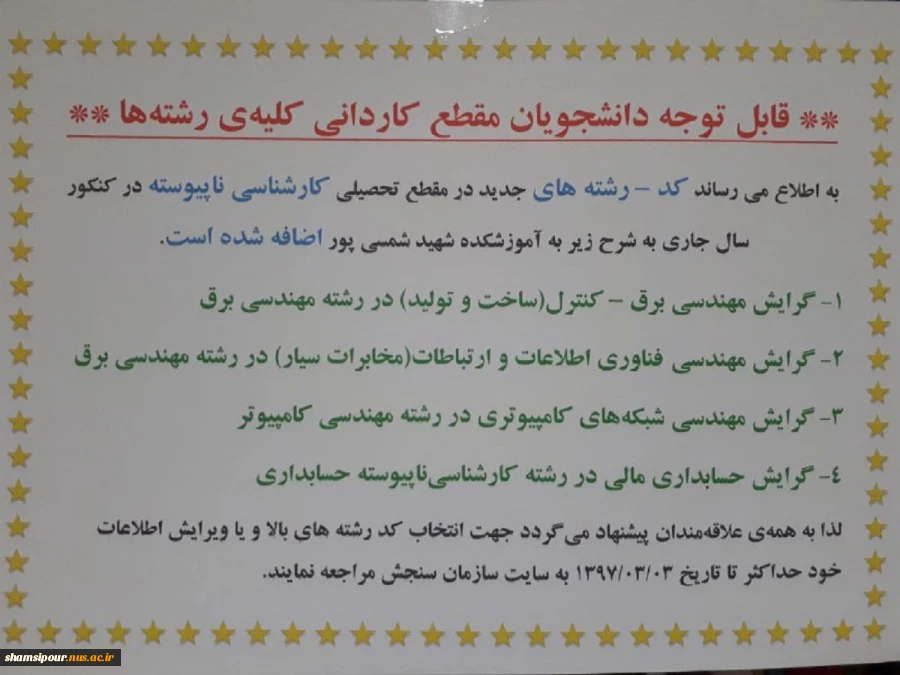 ** قابل توجه دانشجویان مقطع کاردانی کلیه‌ی رشته‌ها **
به اطلاع می رساند کد – رشته های جدید در مقطع تحصیلی کارشناسی ناپیوسته در کنکور
سال جاری به شرح زیر به آموزشکده شهید شمسی پور اضافه شده است.
۱- گرایش مهندسی برق – کنترل(ساخت و تولید) در رشته مهندسی برق
۲- گرایش مهندسی فناوری اطلاعات و ارتباطات(مخابرات سیار) در رشته مهندسی برق
۳- گرایش مهندسی شبکه‌های کامپیوتری در رشته مهندسی کامپیوتر
٤- گرایش حسابداری مالی در رشته کارشناسی‌ناپیوسته حسابداری
لذا به همه‌ی علاقه‌مندان پیشنهاد می‌گردد جهت انتخاب کد رشته های بالا و یا ویرایش اطلاعات
خود حداکثر تا تاریخ ۱۳۹۷/۰۳/۰۳ به سایت سازمان سنجش مراجعه نمایند.
shamsipour.nus.ac.ir